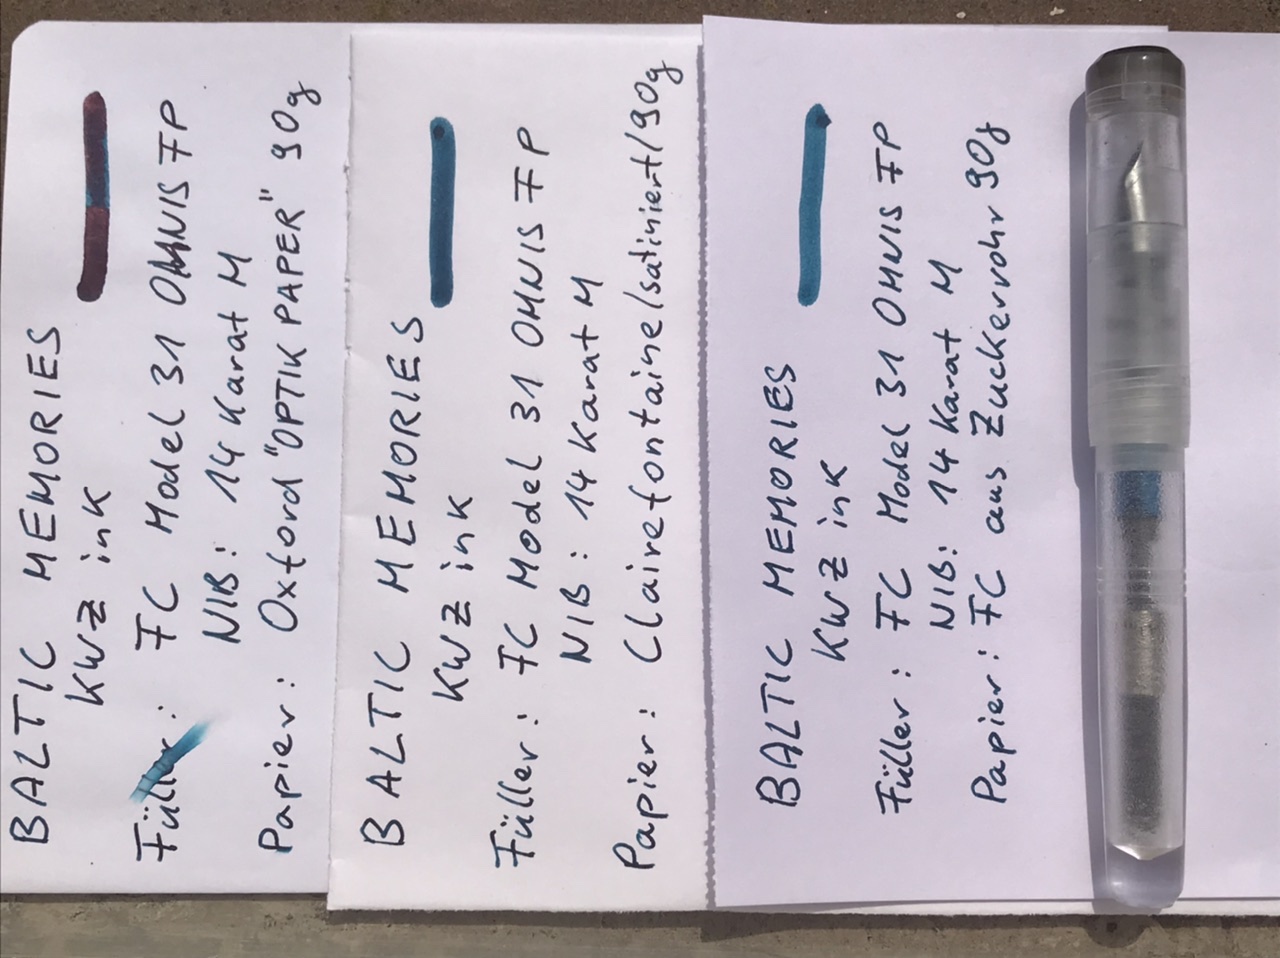 BALTIC MEMORIES
KWZ ink
Füller: FC Model 31 OMNIS FP
NIB: 14 Karat M
Papier: Oxford "OPTIK PAPER" 90g
BALTIC MEMORIES
KWZ ink
Füller: FC Model 31 OMNIS FP
NIB: 14 Karat M
Papier: Clairefontaine/satiniert/90g
BALTIC MEMORIES
KWZ ink
Füller: FC Model 31 OMNIS FP
NIB: 14 Karat M
Papier: FC aus Zuckerrohr 90g